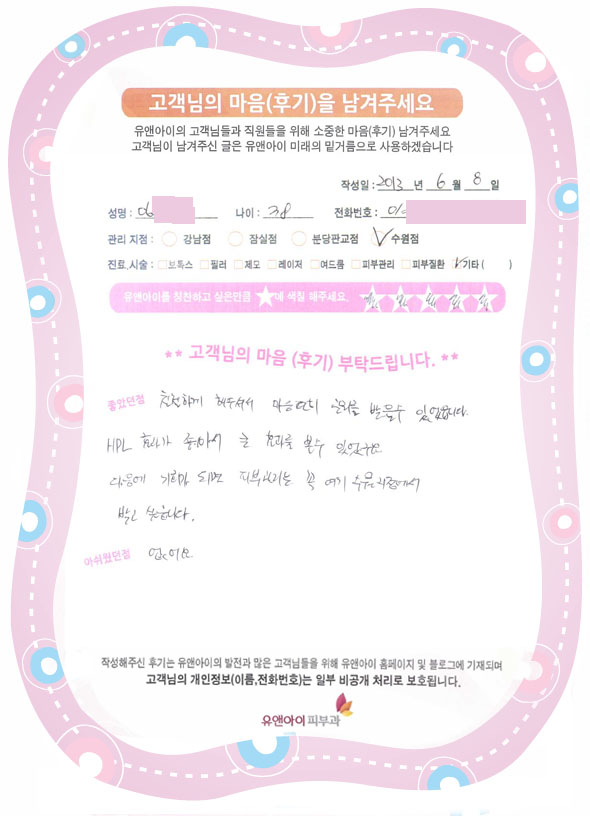 고객님의 마음(후기)을 남겨주세요
유앤아이의 고객님들과 직원들을 위해 소중한 마음(후기) 남겨주세요
고객님이 남겨주신 글은 유앤아이 미래의 밑거름으로 사용하겠습니다
작성일 : 2013 년 6 월 8 일
성명 : 나이 : 38 전화번호 : 01
관리 지점 : 강남점 잠실점 분당판교점 수원점
진료,시술 : 보톡스 필러 제모 레이저 여드름 피부관리 피부질환 기타 ( )
유앤아이를 칭찬하고 싶은만큼 ★에 색칠 해주세요.
** 고객님의 마음 (후기) 부탁드립니다. **
좋았던점 친절하게 해주셔서 마음편히 관리를 받을수 있었습니다.
HPL 효과가 좋아서 큰 효과를 볼수 있었구요
다음에 기회가 되면 피부관리는 꼭 여기 수원지점에서
받고 싶습니다.
아쉬웠던점 없어요
작성해주신 후기는 유앤아이의 발전과 많은 고객님들을 위해 유앤아이 홈페이지 및 블로그에 기재되며
고객님의 개인정보(이름,전화번호)는 일부 비공개 처리로 보호됩니다.
유앤아이피부과